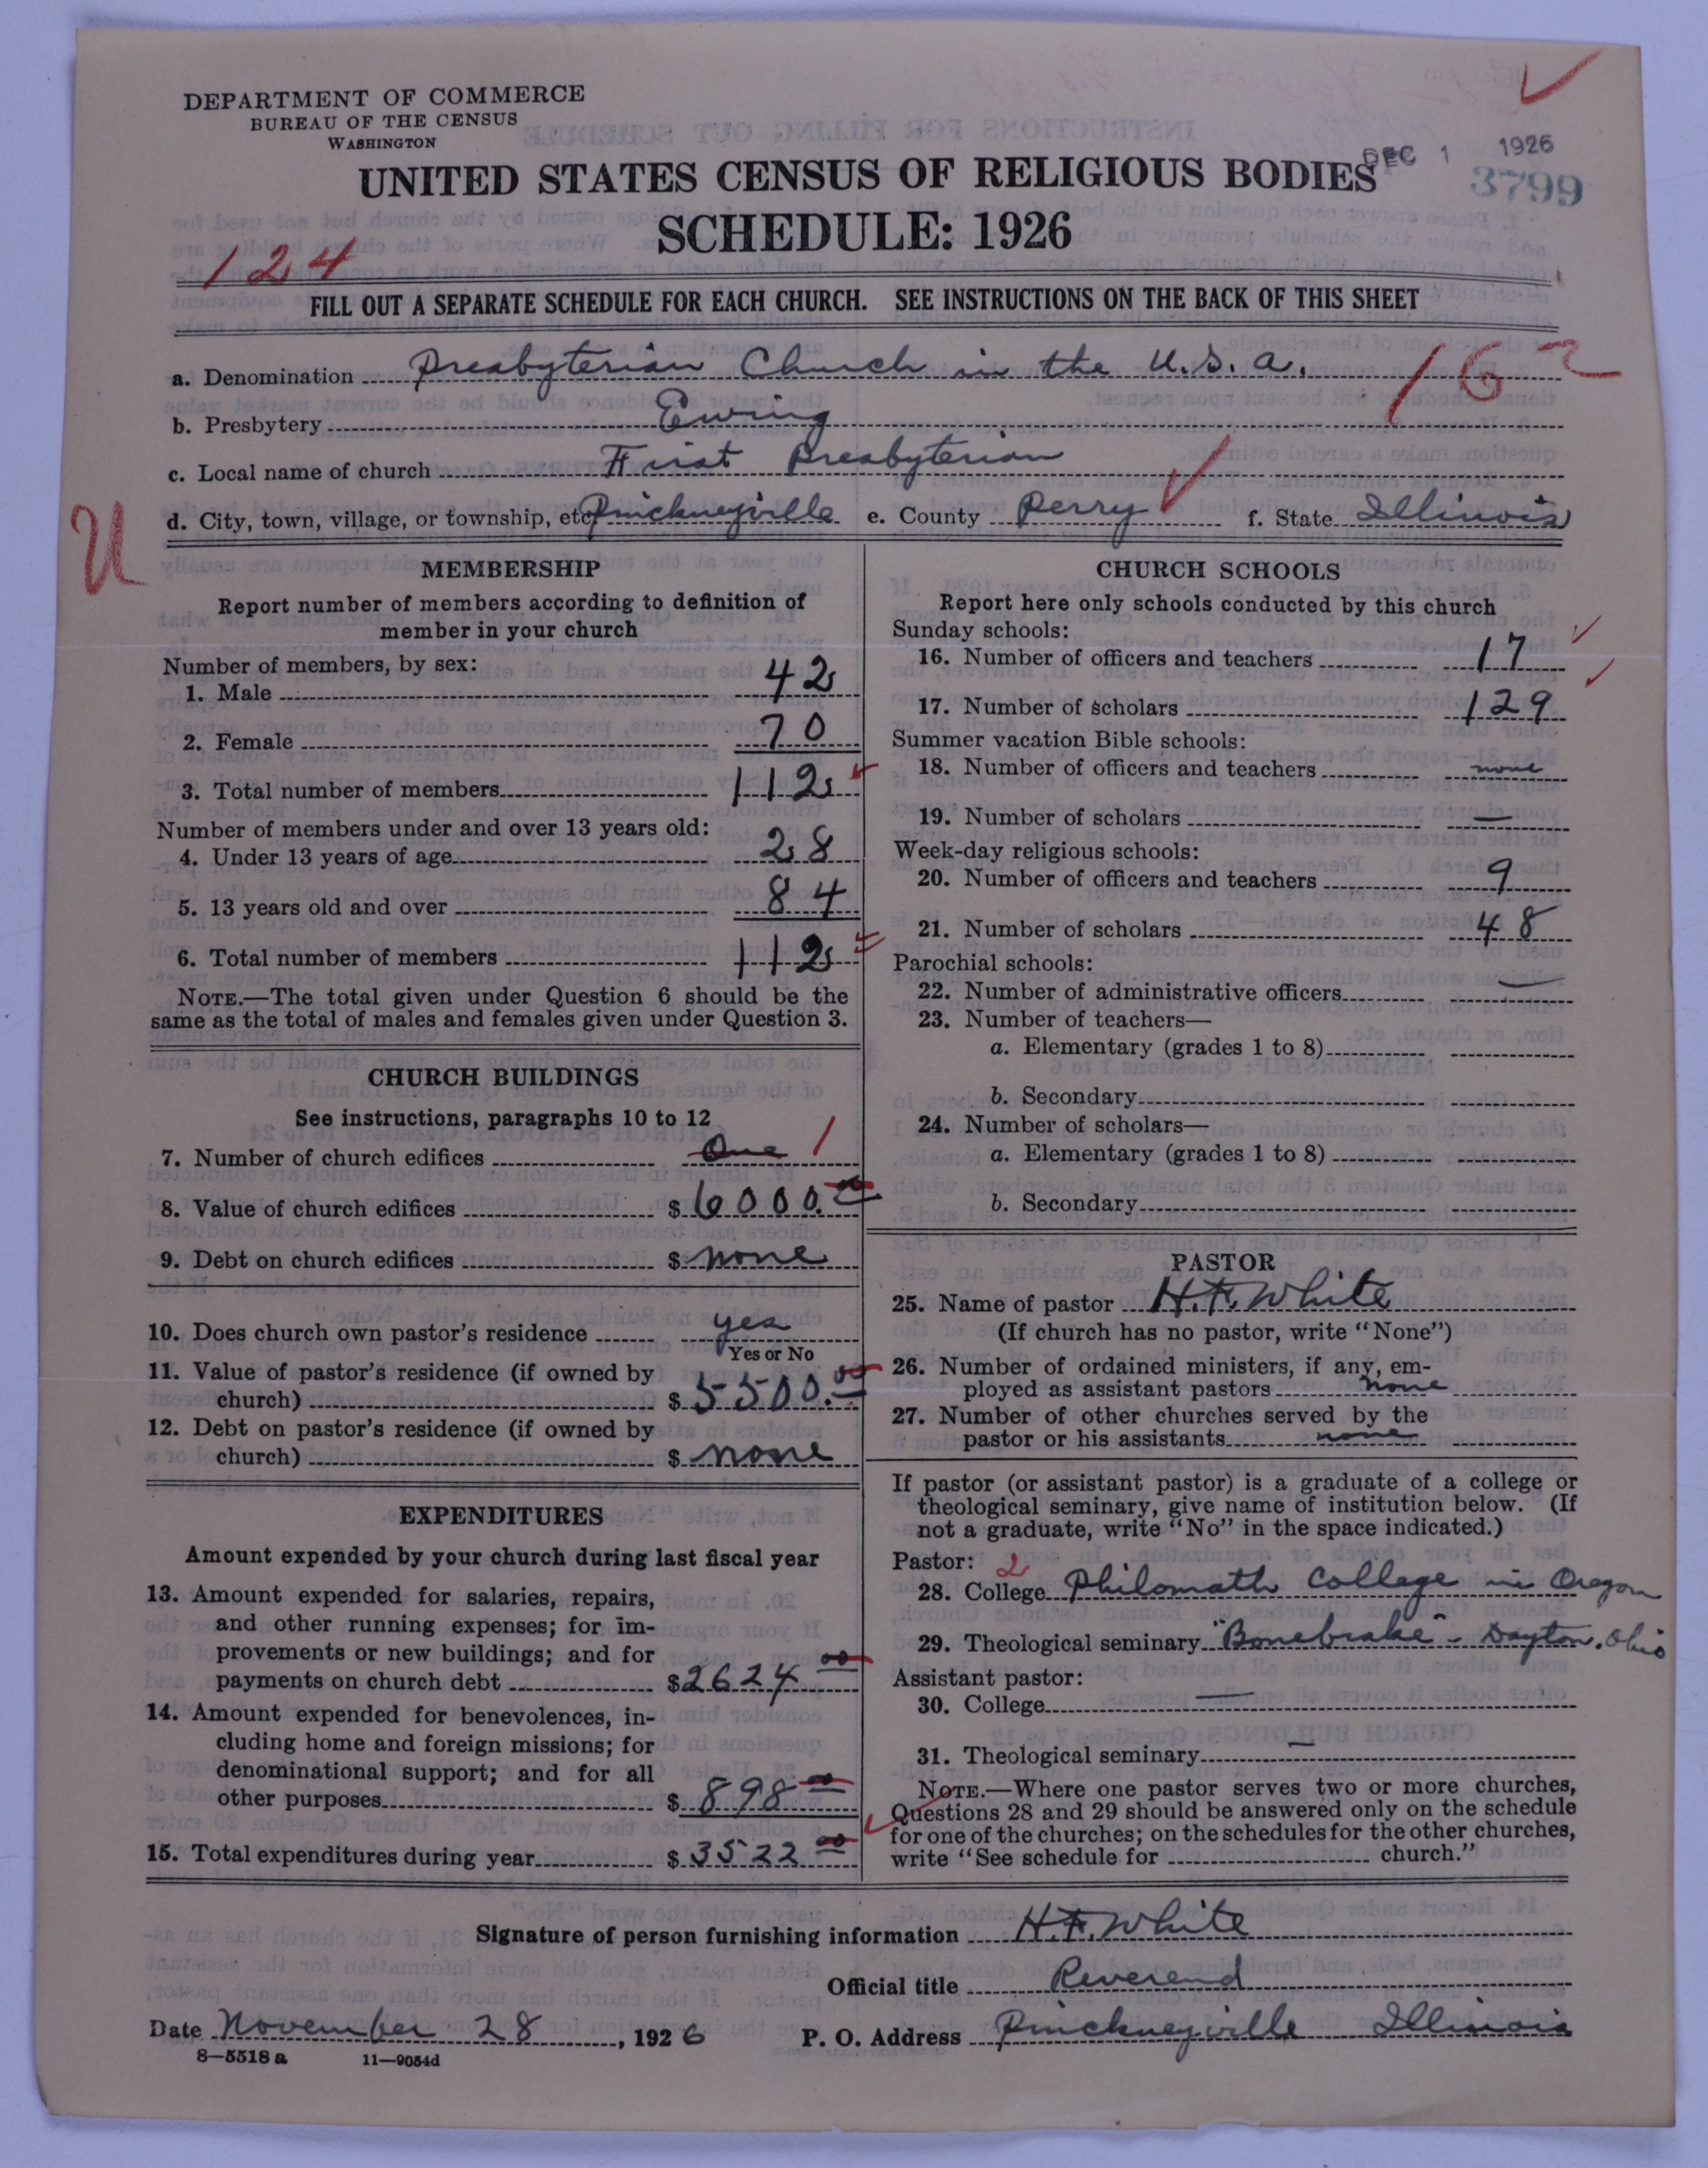 DEPARTMENT OF COMMERCE
BUREAU OF THE CENSUS
WASHINGTON
DEC 1 1926
3799
UNITED STATES CENSUS OF RELIGIOUS BODIES
SCHEDULE: 1926
124
FILL OUT A SEPARATE SCHEDULE FOR EACH CHURCH. SEE INSTRUCTIONS ON THE BACK OF THIS SHEET
a. Denomination Presbyterian Church in the U.S.A. 162
b. Presbytery Ewing
c. Local name of church First Presbyterian
d. City, town, village, or township, etc. Pinckneyville e. County Perry f. State Illinois
U
MEMBERSHIP
Report number of members according to definition of
member in your church
Number of members, by sex:
1. Male 42
2. Female 70
3. Total number of members 112
Number of members under and over 13 years old:
4. Under 13 years of age 28
5. 13 years old and over 84
6. Total number of members 112
NOTE.—The total given under Question 6 should be the
same as the total of males and females given under Question 3.
CHURCH BUILDINGS
See instructions, paragraphs 10 to 12
7. Number of church edifices One 1
8. Value of church edifices $ 6000.00
9. Debt on church edifices $ none
10. Does church own pastor's residence yes
Yes or No
11. Value of pastor's residence (if owned by
church) $ 5500.00
12. Debt on pastor's residence (if owned by
church) $ none
EXPENDITURES
Amount expended by your church during last fiscal year
13. Amount expended for salaries, repairs,
and other running expenses; for im-
provements or new buildings; and for
payments on church debt $ 2624 00
14. Amount expended for benevolences, in-
cluding home and foreign missions; for
denominational support; and for all
other purposes $ 898 00
15. Total expenditures during year $ 3522 00
CHURCH SCHOOLS
Report here only schools conducted by this church
Sunday schools:
16. Number of officers and teachers 17
17. Number of scholars 129
Summer vacation Bible schools:
18. Number of officers and teachers none
19. Number of scholars —
Week-day religious schools:
20. Number of officers and teachers 9
21. Number of scholars 48
Parochial schools:
22. Number of administrative officers —
23. Number of teachers—
a. Elementary (grades 1 to 8)
b. Secondary
24. Number of scholars—
a. Elementary (grades 1 to 8)
b. Secondary
PASTOR
25. Name of pastor H.F. White
(If church has no pastor, write "None")
26. Number of ordained ministers, if any, em-
ployed as assistant pastors none
27. Number of other churches served by the
pastor or his assistants none
If pastor (or assistant pastor) is a graduate of a college or
theological seminary, give name of institution below. (If
not a graduate, write "No" in the space indicated.)
Pastor: 2
28. College Philomath College in Oregon
29. Theological seminary "Bonebrake" - Dayton, Ohio
Assistant pastor:
30. College —
31. Theological seminary —
NOTE.—Where one pastor serves two or more churches,
Questions 28 and 29 should be answered only on the schedule
for one of the churches; on the schedules for the other churches,
write "See schedule for church."
Signature of person furnishing information H.F. White
Official title Reverend
Date November 28, 1926 P. O. Address Pinckneyville Illinois
8—5518 a 11—9054d